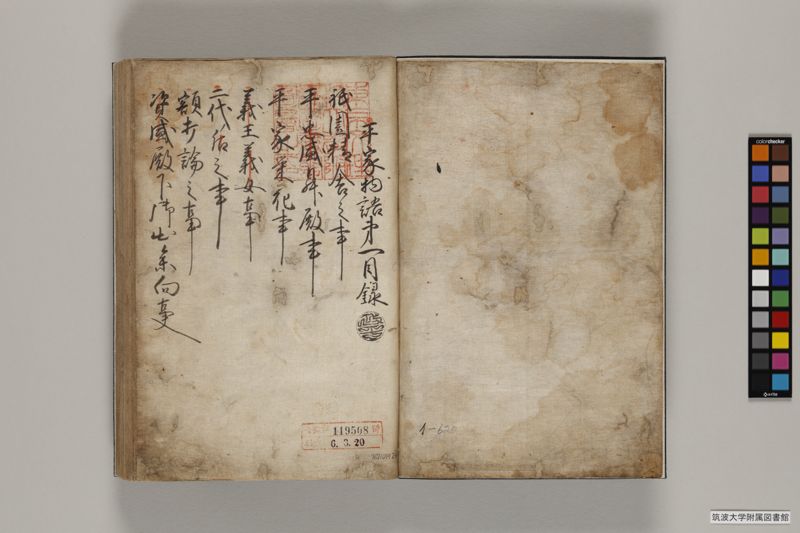 平家物語第一目録
祇園精舎之事
平忠盛昇殿事
平家栄花事
義王義女事
二代后之事
額打論之事
資盛殿下御出参向事
119508
6.3.20
1-620
colorchecker
x-rite
筑波大学附属図書館